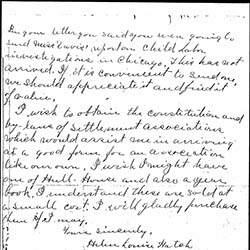 In your letter you said you were going to
send Miss Davis' report on Child Labor
investigations in Chicago. This has not
arrived. If it is convenient to send on,
we should appreciate it and find it
of value.
I wish to obtain the constitution and
by-laws of settlement associations
which would assist me in arriving
at a good form for an association
like our own. I wish I might have
one of Hull-House and also a year
book. I understand these are sold at
a small cost. I will gladly purchase
them if I may.
Yours sincerely,
Helen Louise